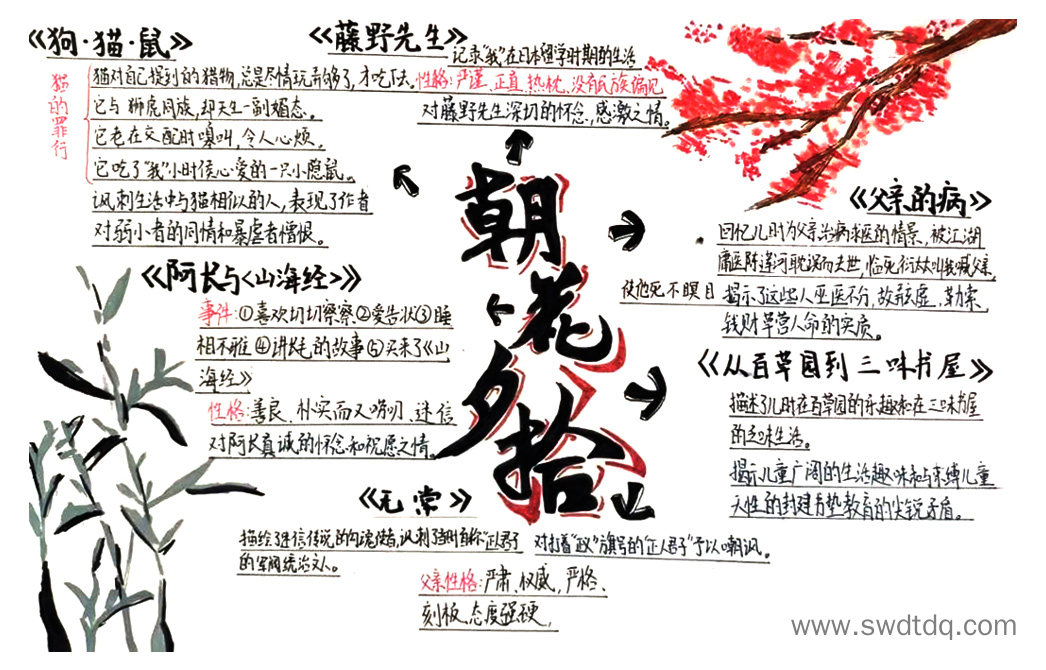 《狗·猫·鼠》
猫的罪行
猫对自己捉到的猎物,总是尽情玩弄够了,才吃下去。
它与狮虎同族,却天生一副媚态。
它老在交配时嗥叫,令人心烦。
它吃了“我”小时侯心爱的一只小隐鼠。
讽刺生活中与猫相似的人,表现了作者
对弱小者的同情和暴虐者憎恨。
《藤野先生》
记录“我”在日本留学时期的生活
性格:严谨、正直、热枕、没有民族偏见
对藤野先生深切的怀念,感激之情。
朝花夕拾
《父亲的病》
回忆儿时为父亲治病求医的情景,被江湖
庸医陈莲河耽误而去世,临死衍太太叫我喊父亲,
使他死不瞑目
揭示了这些人巫医不分,故弄玄虚,勒索
钱财草菅人命的实质。
《阿长与<山海经>》
事件:①喜欢切切察察②爱告状③睡
相不雅④讲长毛的故事⑤买来了《山
海经》
性格:善良、朴实而又唠叨、迷信
对阿长真诚的怀念和祝愿之情。
《从百草园到三味书屋》
描述了儿时在百草园的乐趣和在三味书屋
的乏味生活。
揭示儿童广阔的生活趣味和与束缚儿童
天性的封建书塾教育的尖锐矛盾。
《无常》
描绘了迷信传说的勾魂使者,讽刺了当时自称“正君子”
的军阀统治文人。
对打着“政”旗号的“正人君子”予以嘲讽。
父亲性格:严肃、权威,严格、
刻板、态度强硬,
www.swdtdq.com